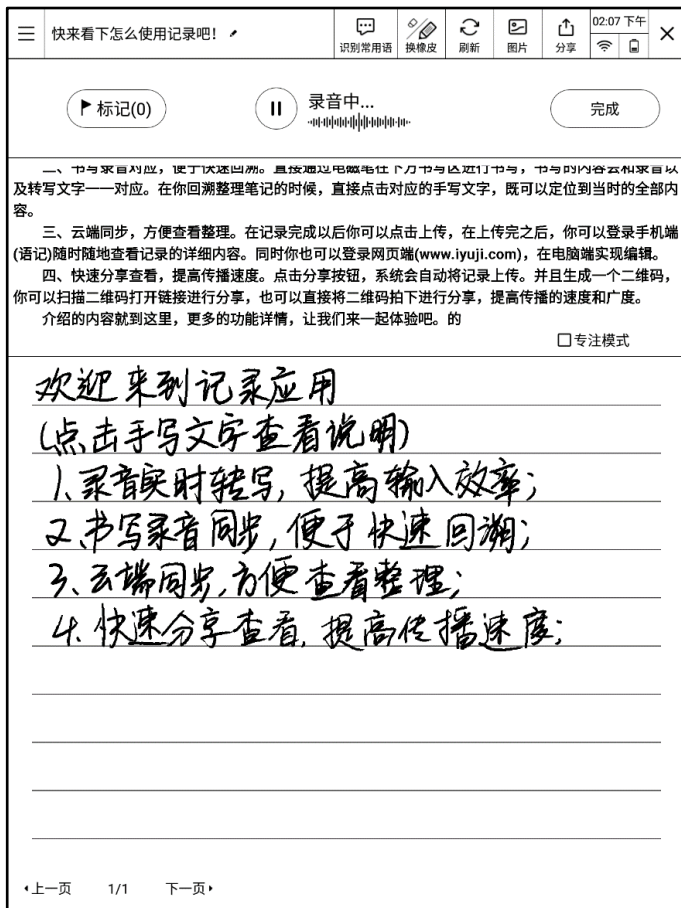 快来看下怎么使用记录吧！
识别常用语
换橡皮
刷新
图片
分享
02:07 下午
标记(0)
录音中...
完成
二、书写录音对应，便于快速回溯。直接通过电磁笔在下方书写区进行书写，书写的内容会和录音以
及转写文字一一对应。在你回溯整理笔记的时候，直接点击对应的手写文字，既可以定位到当时的全部内
容。
三、云端同步，方便查看整理。在记录完成以后你可以点击上传，在上传完之后，你可以登录手机端
(语记)随时随地查看记录的详细内容。同时你也可以登录网页端(www.iyuji.com)，在电脑端实现编辑。
四、快速分享查看，提高传播速度。点击分享按钮，系统会自动将记录上传。并且生成一个二维码，
你可以扫描二维码打开链接进行分享，也可以直接将二维码拍下进行分享，提高传播的速度和广度。
介绍的内容就到这里，更多的功能详情，让我们来一起体验吧。的
专注模式
欢迎来到记录应用
(点击手写文字查看说明)
1、录音实时转写，提高输入效率；
2、书写录音同步，便于快速回溯；
3、云端同步，方便查看整理；
4、快速分享查看，提高传播速度；
上一页 1/1 下一页